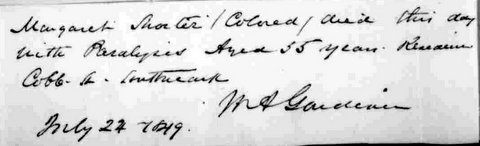 Margaret Shorter (Colored) died this day
with Paralysis Aged 55 years. Residence
Cobb St. Southwark
W A Gardiner
July 22 1849.